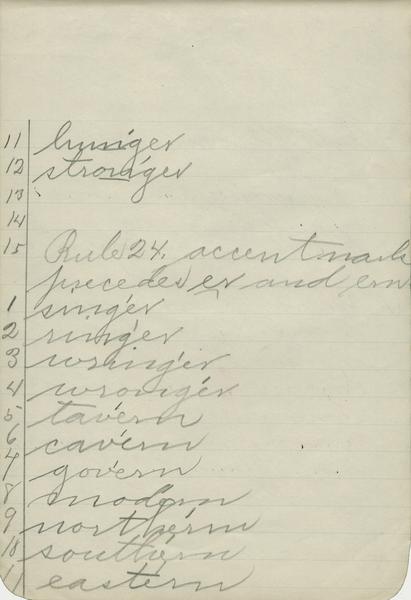 11 hun͟ger
12 stron͟ger
13
14
15 Rule 24. accent mark
precedes er and ern
1 singér
2 ringér
3 wringér
4 wrongér
5 tavérn
6 cavérn
7 govérn
8 modern
9 northérn
10 southérn
11 eastern